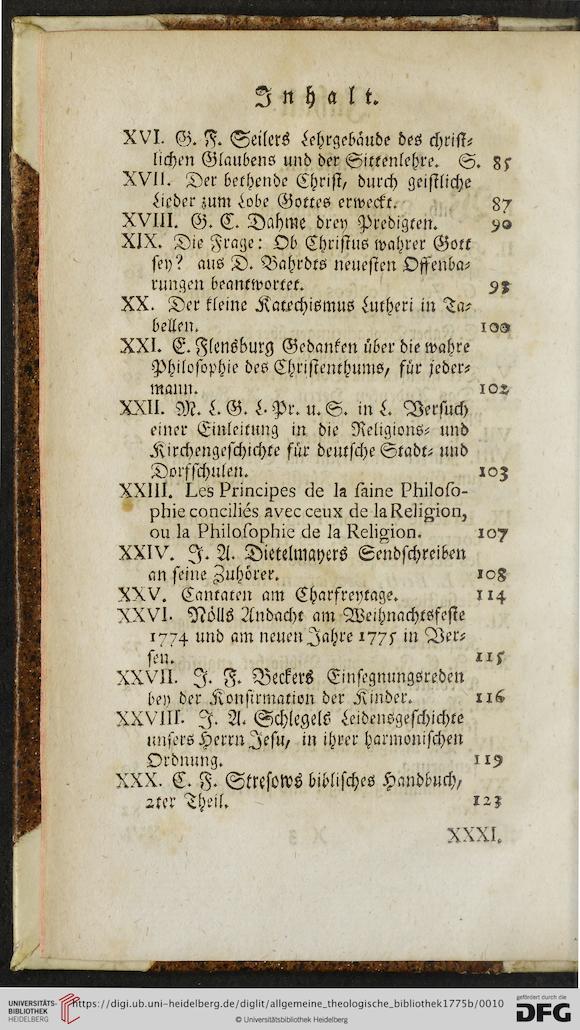 Inhalt.
XVI. G. F. Seilers Lehrgebäude des christ⸗
lichen Glaubens und der Sittenlehre. S. 85
XVII. Der bethende Christ, durch geistliche
Lieder zum Lobe Gottes erweckt. 87
XVIII. G. C. Dahme drey Predigten. 90
XIX. Die Frage: Ob Christus wahrer Gott
sey? aus D. Bahrdts neuesten Offenba⸗
rungen beantwortet.
XX. Der kleine Katechismus Lutheri in Ta⸗
bellen. 100
XXI. E. Flensburg Gedanken über die wahre
Philosophie des Christenthums, für jeder⸗
mann. 102
XXII. M. L. G. L. Pr. u. S. in L. Versuch
einer Einleitung in die Religions⸗ und
Kirchengeschichte für deutsche Stadt⸗ und
Dorfschulen. 103
XXIII. Les Principes de la ſaine Philoſo-
phie conciliés avec ceux de la Religion,
ou la Philoſophie de la Religion. 107
XXIV. J. A. Dietelmayers Sendschreiben
an seine Zuhörer. 108
XXV. Cantaten am Charfreytage. 114
XXVI. Nölls Andacht am Weihnachtsfeste
1774 und am neuen Jahre 1775 in Ver⸗
sen. 115
XXVII. J. F. Beckers Einsegnungsreden
bey der Konfirmation der Kinder. 116
XXVIII. J. A. Schlegels Leidensgeschichte
unsers Herrn Jesu, in ihrer harmonischen
Ordnung. 119
XXX. C. F. Stresows biblisches Handbuch,
2ter Theil. 123
XXXI.
UNIVERSITÄTS-
BIBLIOTHEK
HEIDELBERG
https://digi.ub.uni-heidelberg.de/diglit/allgemeine_theologische_bibliothek1775b/0010
© Universitätsbibliothek Heidelberg
gefördert durch die
DFG